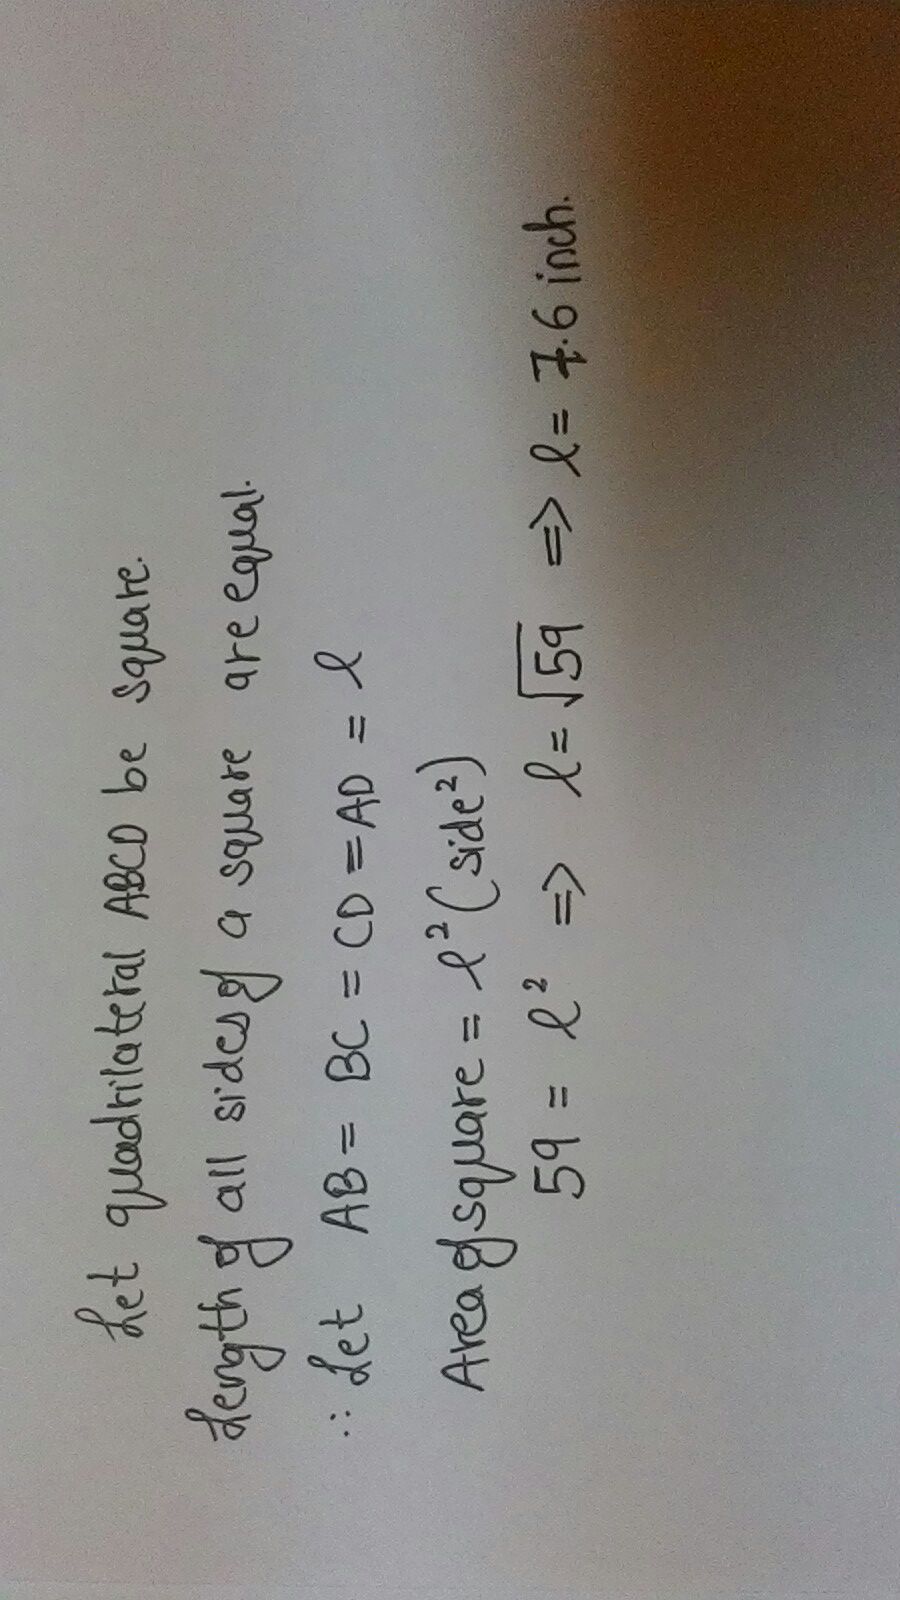 Let quadrilateral ABCD be square.
Length of all sides of a square are equal.
∴ Let AB = BC = CD = AD = l
Area of square = l² (side²)
59 = l² => l = √59 => l = 7.6 inch.